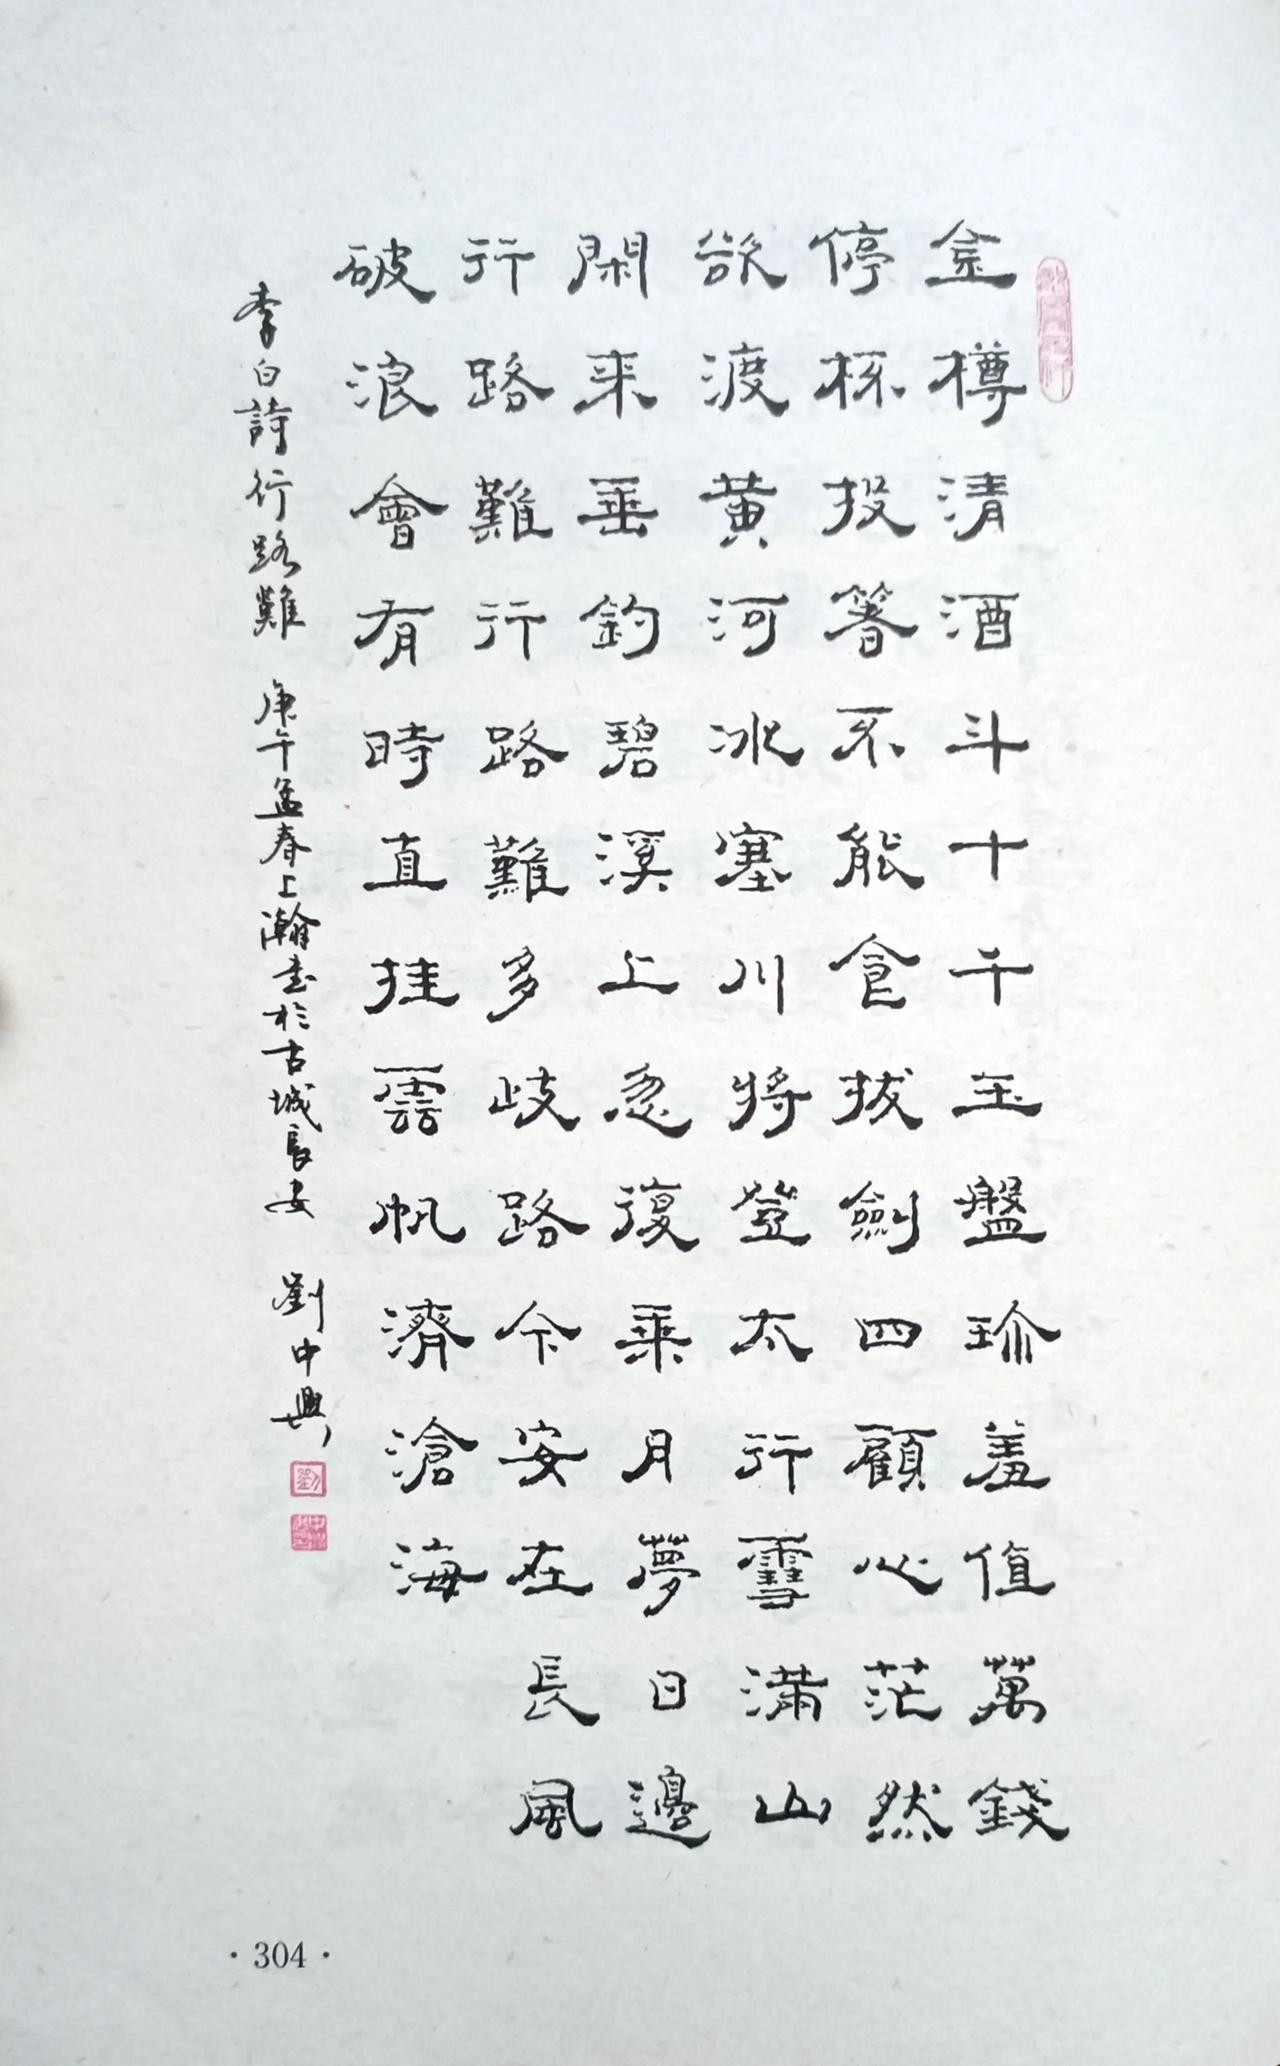 金樽清酒斗十千玉盤珍羞值萬錢
停杯投箸不能食拔劍四顧心茫然
欲渡黃河冰塞川將登太行雪滿山
閑来垂釣碧溪上忽復乘月夢日邊
行路難行路難多歧路今安在長風
破浪會有時直挂雲帆濟滄海
李白詩行路難 庚午孟春上瀚書於古城長安 劉中興
劉
·304·